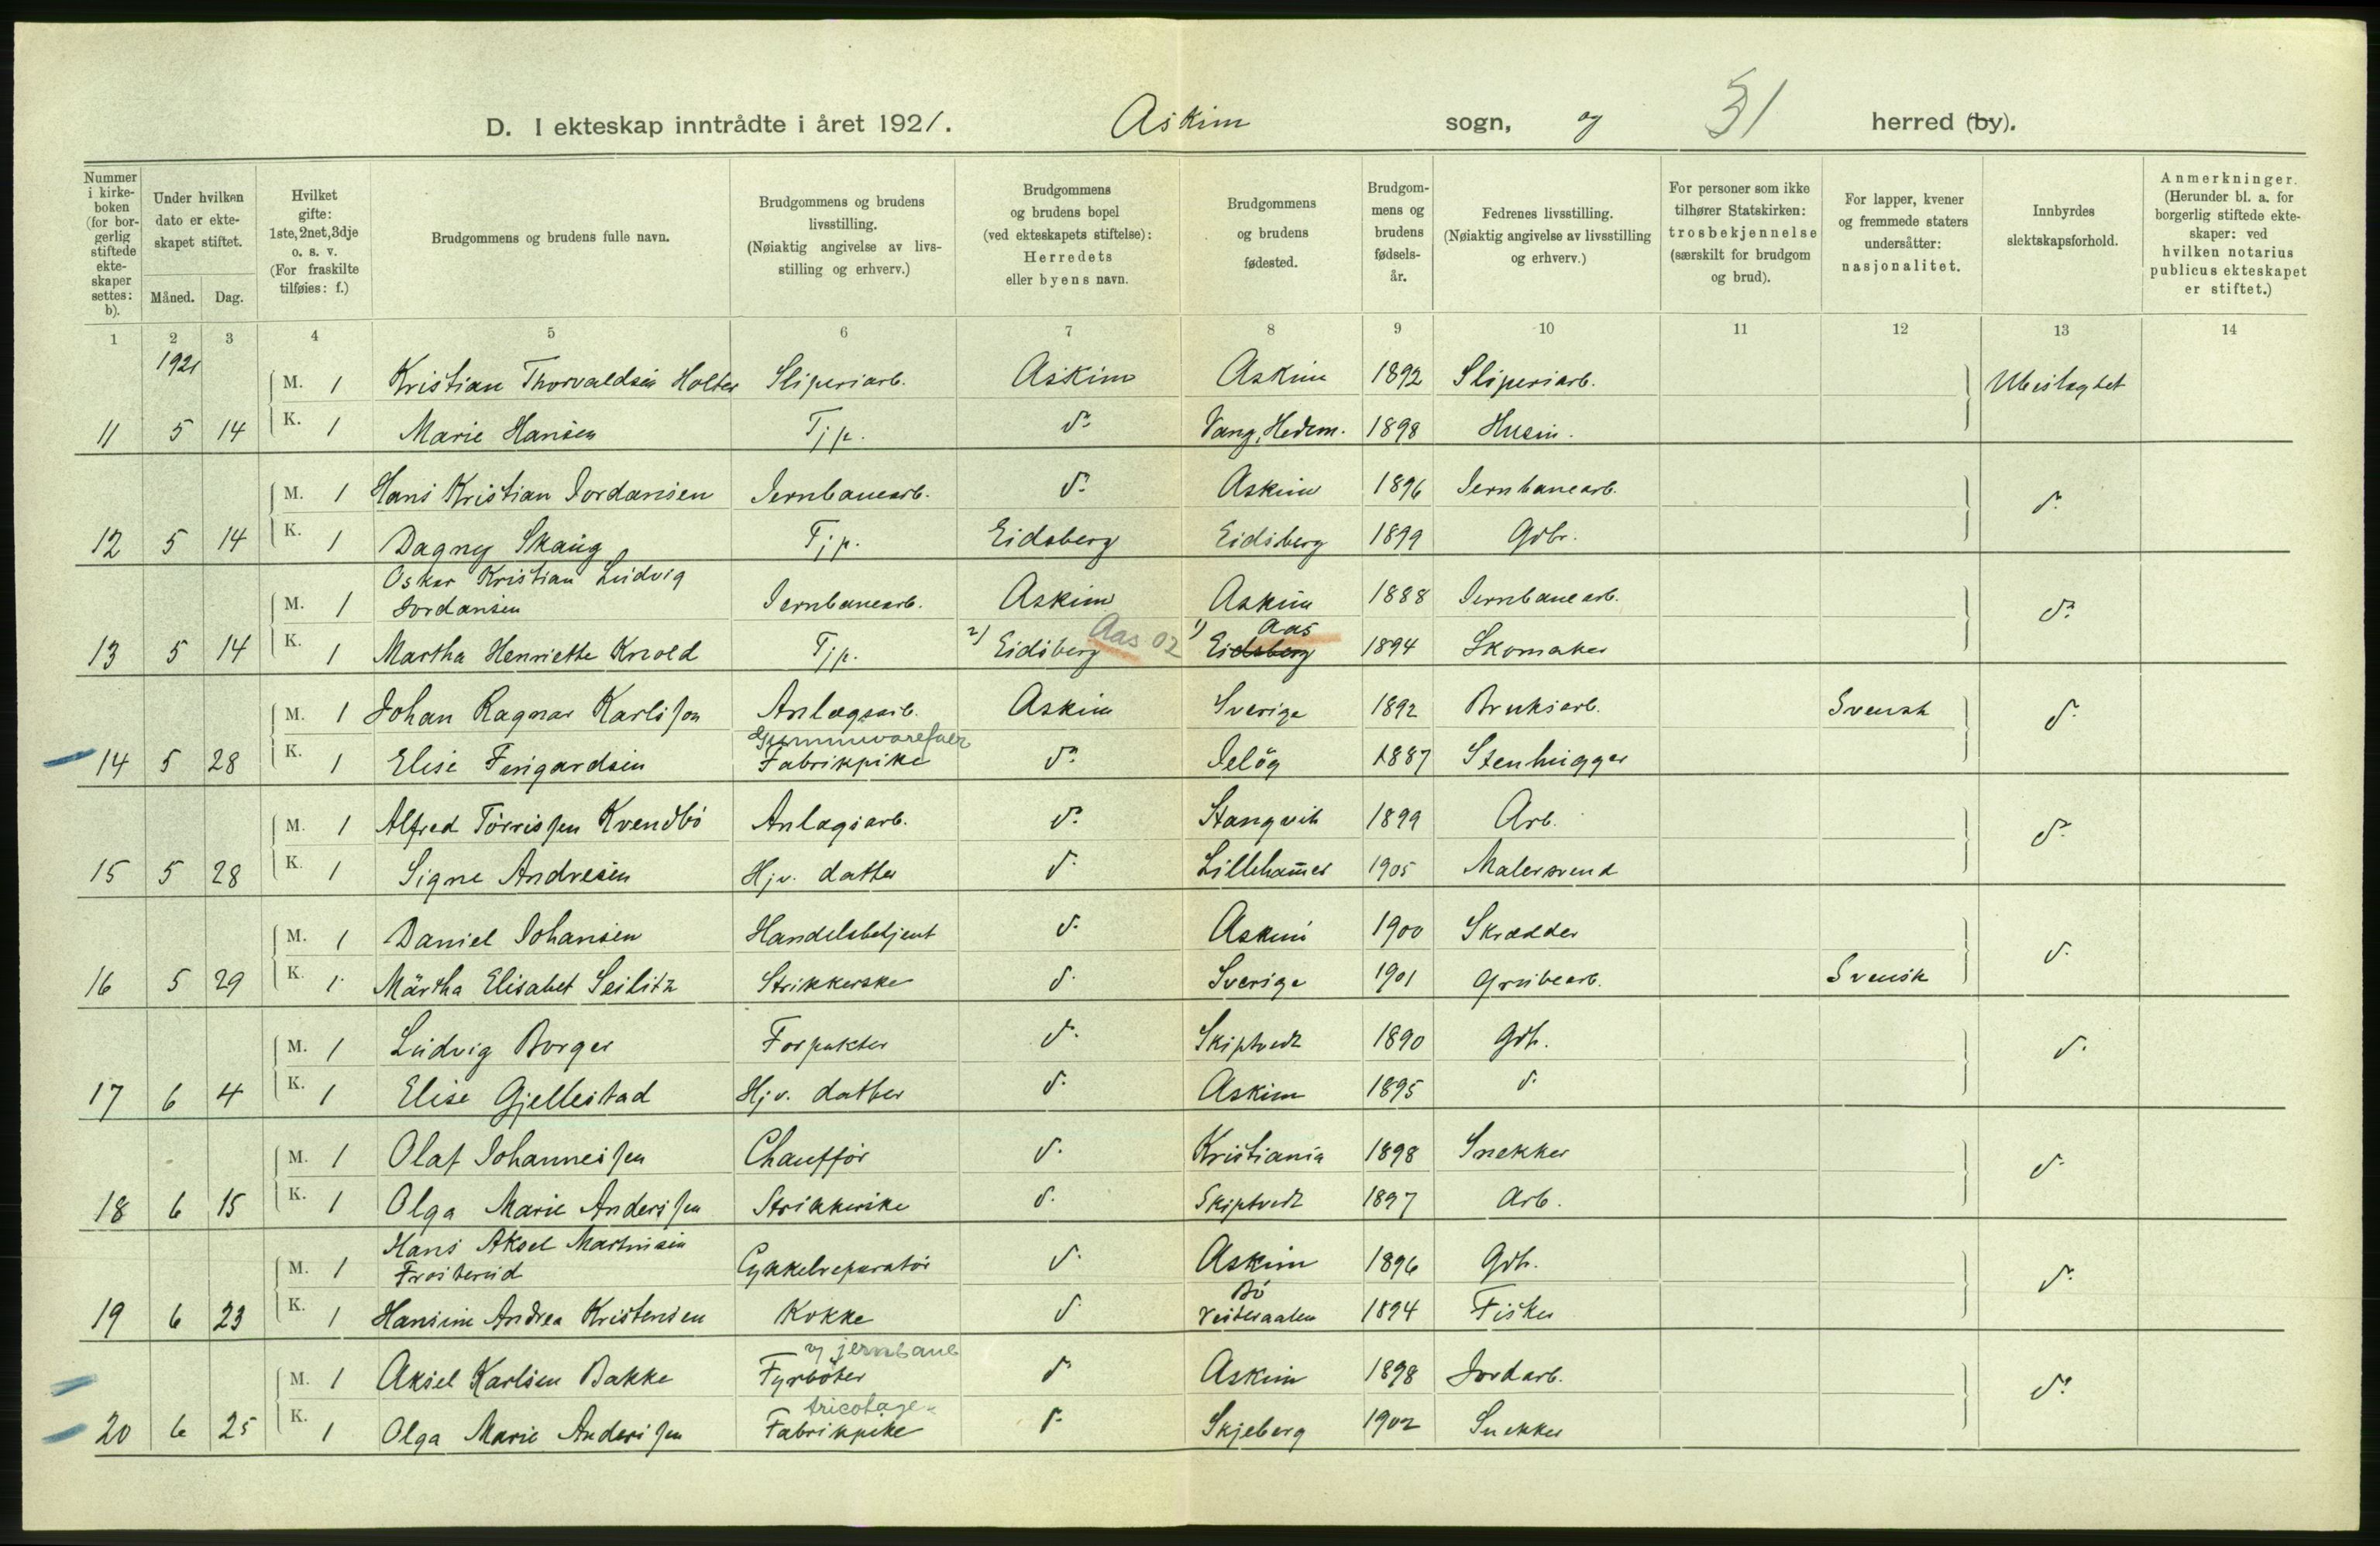 D. I ekteskap inntrådte i året 1921. Askim sogn, og 31 herred (by).
Nummer i kirkeboken (for borgerlig stiftede ekteskaper settes: b).
Under hvilken dato er ekteskapet stiftet.
Måned. Dag.
Hvilket gifte: 1ste, 2net, 3dje o. s. v. (For fraskilte tilføies: f.)
Brudgommens og brudens fulle navn.
Brudgommens og brudens livsstilling. (Nøiaktig angivelse av livsstilling og erhverv.)
Brudgommens og brudens bopel (ved ekteskapets stiftelse): Herredets eller byens navn.
Brudgommens og brudens fødested.
Brudgommens og brudens fødselsår.
Fedrenes livsstilling. (Nøiaktig angivelse av livsstilling og erhverv.)
For personer som ikke tilhører Statskirken: trosbekjennelse (særskilt for brudgom og brud).
For lapper, kvener og fremmede staters undersåtter: nasjonalitet.
Innbyrdes slektskapsforhold.
Anmerkninger. (Herunder bl. a. for borgerlig stiftede ekteskaper: ved hvilken notarius publicus ekteskapet er stiftet.)
1 2 3 4 5 6 7 8 9 10 11 12 13 14
1921
M. 1 Kristian Thorvaldsen Holter Sliperiarb. Askim Askim 1892 Sliperiarb. Ubeslegtet
11 5 14 K. 1 Marie Hansen Tjp. do Vang, Hedem. 1898 Husm.
M. 1 Hans Kristian Jordansen Jernbanearb. do Askim 1896 Jernbanearb. do
12 5 14 K. 1 Dagny Skaug Tjp. Eidsberg Eidsberg 1899 Gdbr.
Oskar Kristian Ludvig
M. 1 Jordansen Jernbanearb. Askim Askim 1888 Jernbanearb. do
Aas 02 Aas
13 5 14 K. 1 Martha Henriette Knold Tjp. 2) Eidsberg 1) Eidsberg 1894 Skomaker
M. 1 Johan Ragnar Karlsson Anlægsarb. Askim Sverige 1892 Bruksarb. Svensk do
Gummivarefabr
14 5 28 K. 1 Elise Fingardsen Fabrikpike do Jeløy 1887 Stenhugger
M. 1 Alfred Törrissen Kvendbö Anlægsarb. do Stangvik 1899 Arb. do
15 5 28 K. 1 Signe Andresen Hjv. datter do Lillehamer 1905 Malersvend
M. 1 Daniel Johansen Handelsbetjent do Askim 1900 Skrædder do
16 5 29 K. 1 Märtha Elisabet Seilitz Strikkerske do Sverige 1901 Grubearb. Svensk
M. 1 Ludvig Borger Forpakter do Skiptvedt 1890 Gdb. do
17 6 4 K. 1 Elise Gjellestad Hjv. datter do Askim 1895 do
M. 1 Olaf Johannessen Chauffør do Kristiania 1898 Snekker do
18 6 15 K. 1 Olga Marie Anderssen Strikkerske do Skiptvedt 1897 Arb.
Hans Aksel Martinsen
M. 1 Frøshereid Cykkelreparatør do Askim 1896 Gdb. do
Bö
19 6 23 K. 1 Hansine Andrea Kristensen Kokke do Vesteraalen 1894 Fisker
v/ jernbane
M. 1 Aksel Karlsen Bakke Fyrbøter do Askim 1898 Jordarb. do
tricotage
20 6 25 K. 1 Olga Marie Anderssen Fabrikpike do Skjeberg 1902 Snekker